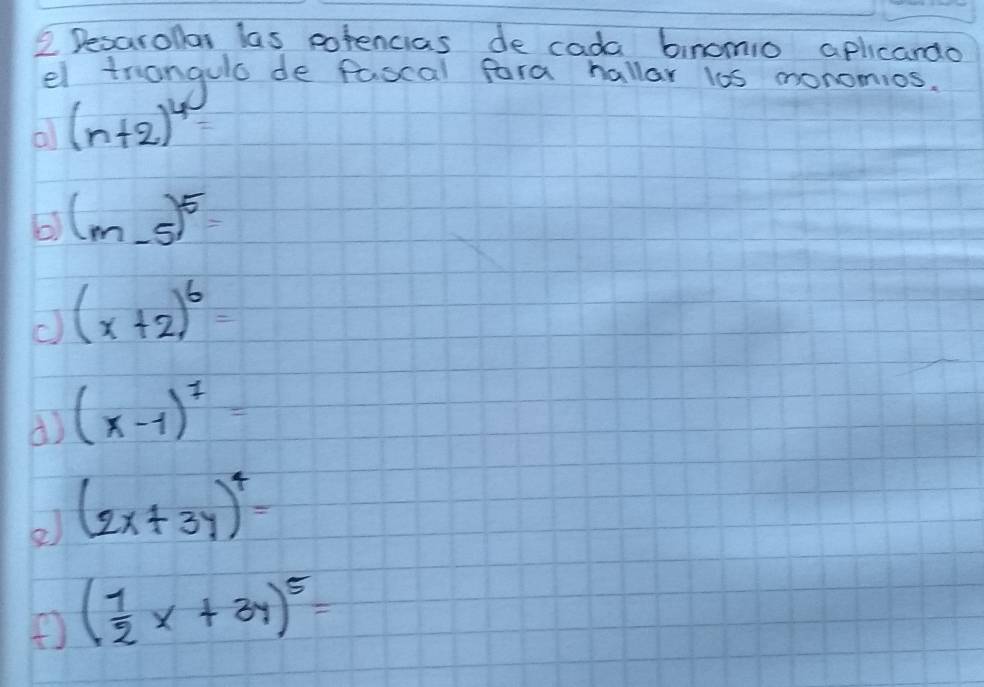 2 Desarollar las potencias de cada binomio aplicando
el triangulo de Pascal para hallar los monomios.
a) (n+2)^4=
b) (m-5)^5=
c) (x+2)^6=
d) (x-1)^7=
e) (2x+3y)^4=
f) (1/2 x + 3y)^5=